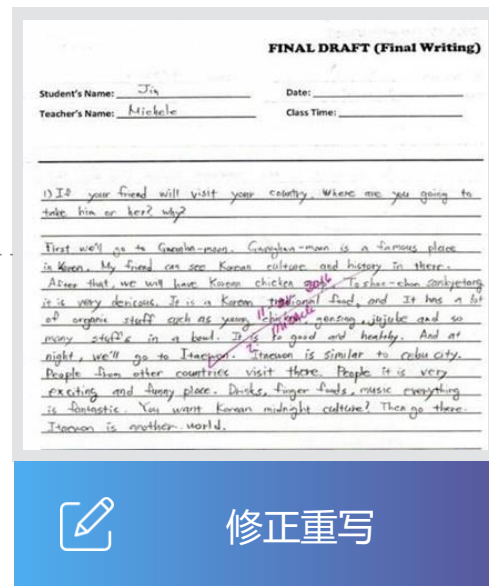 FINAL DRAFT (Final Writing)
Student's Name: Jin Date:
Teacher's Name: Michele Class Time:
1) If your friend will visit your country. Where are you going to
take him or her? why?
First we'll go to Gwanghwa-moon. is a famous place
in Korea. My friend can see Korean culture and history in there.
After that, we will have Korean chicken samkyetang
it is very dericous. It is a Korean food, and It has a lot
of organic stuff such as young chicken, genseng, jujube and so
many stuff's in a bowl. It is to good and healthy. And at
night, we'll go to Itaewon. Itaewon is similar to cebu city.
People from other countries visit there. People it is very
exciting and funny place. Drinks, finger foods, music everything
is fantastic. You want Korean midnight culture? Then go there.
Itaewon is another world.
修正重写